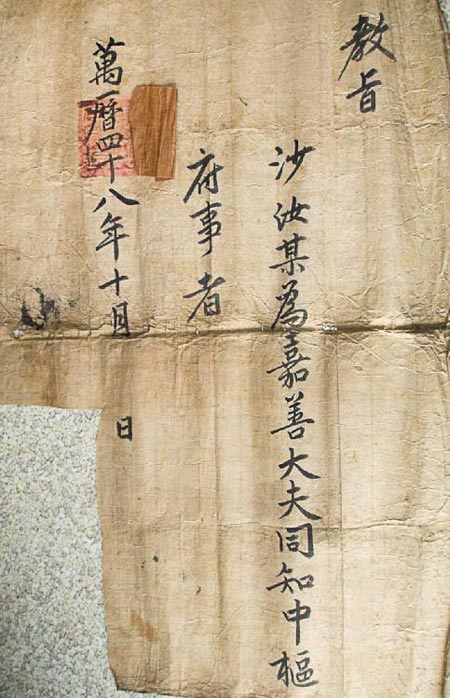 教旨
沙汝某爲嘉善大夫同知中樞
府事者
萬曆四十八年十月 日